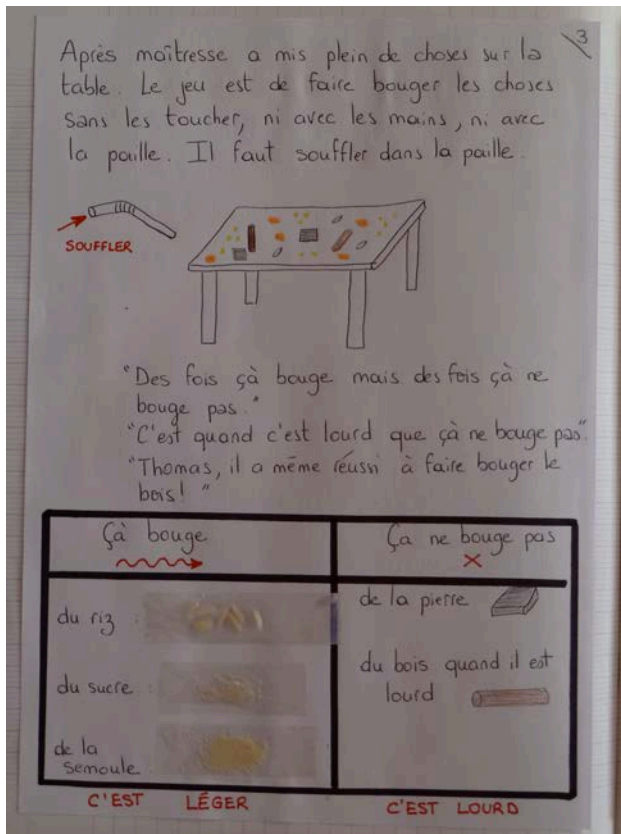 3
Après maîtresse a mis plein de choses sur la
table. Le jeu est de faire bouger les choses
sans les toucher, ni avec les mains, ni avec
la paille. Il faut souffler dans la paille.
SOUFFLER
"Des fois çà bouge mais des fois çà ne
bouge pas."
"C'est quand c'est lourd que çà ne bouge pas".
"Thomas, il a même réussi à faire bouger le
bois! "
Çà bouge
Ça ne bouge pas
du riz :
de la pierre
du sucre :
du bois quand il est
lourd
de la
semoule :
C'EST LÉGER
C'EST LOURD